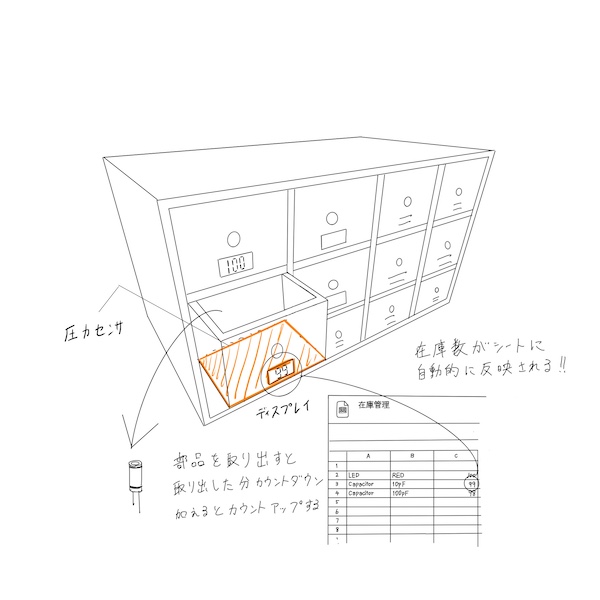 100
圧力センサ
99
ディスプレイ
在庫数がシートに
自動的に反映される!!
部品を取り出すと
取り出した分カウントダウン
加えるとカウントアップする
在庫管理
A B C
1
2 LED RED
3 Capacitor 10pF 99
4 Capacitor 100pF
5
6
7
8